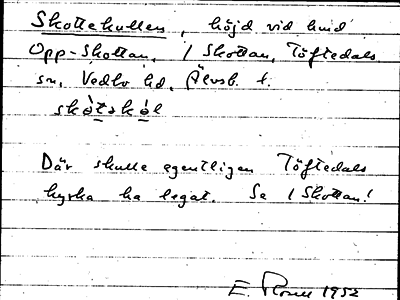 Skottekullen, höjd vid huid
Opp-Skottan, 1 Skottan, Töftedals
sn, Vedbo hd, Älvsb. l.
skòtəskòl
Där skulle egentligen Töftedals
kyrka ha legat. Se 1 Skottan!
E. 1952